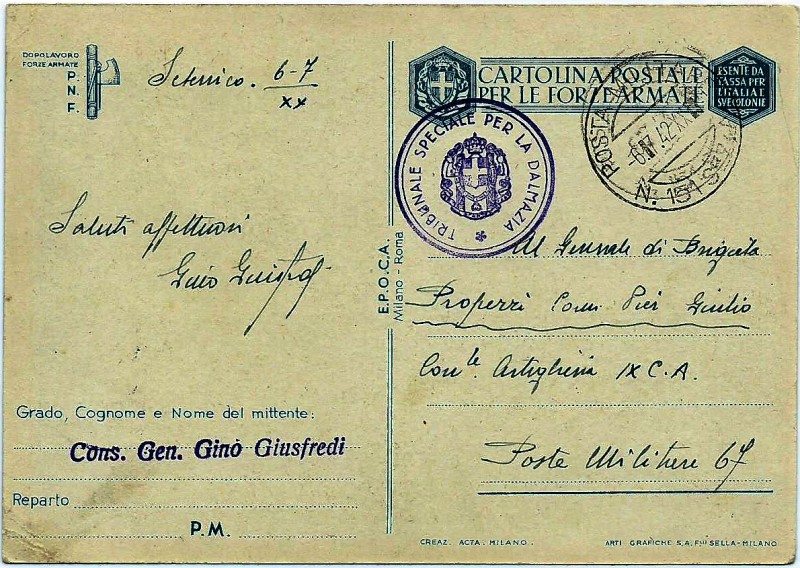 DOPOLAVORO
FORZE ARMATE
P.
N.
F.
Sebenico. 6-7
XX
Saluti affettuosi
Gino
Grado, Cognome e Nome del mittente:
Cons. Gen. Gino Giusfredi
Reparto
P.M.
E.P.O.C.A.
Milano - Roma
CARTOLINA POSTALE
PER LE FORZE ARMATE
ESENTE DA
TASSA PER
L'ITALIA E
SVE COLONIE
TRIBUNALE SPECIALE PER LA DALMAZIA
POSTA MILITARE
N. 151
Al Generale di Brigata
Properzi Comm Pier Giulio
Com.te Artiglieria IX C.A.
Posta Militare 67
CREAZ. ACTA. MILANO.
ARTI GRAFICHE S.A. Flli SELLA-MILANO